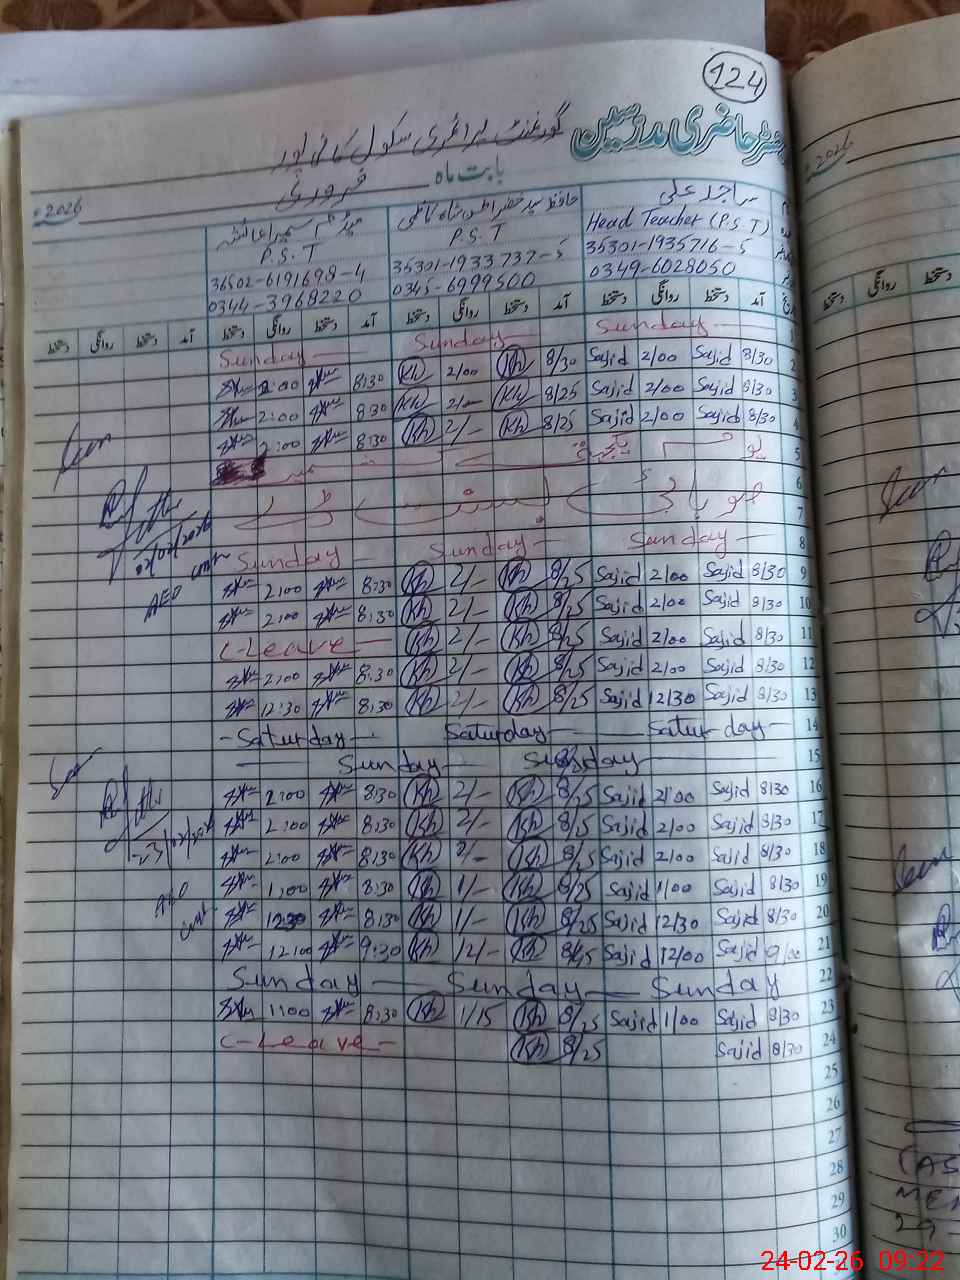 124
رجسٹر حاضری مدرسین گورنمنٹ پرائمری سکول
بابت ماہ فروری 2026ء
ساجد علی
Head Teacher (P.S.T)
35301-1935716-5
0349-6028050
حافظ سید خضر
P.S.T
35301-1933737-5
0345-6999500
میڈم سمیرا عائشہ
P.S.T
36502-6191698-4
0344-3968220
آمد دستخط روانگی دستخط آمد دستخط روانگی دستخط آمد دستخط روانگی دستخط آمد دستخط روانگی دستخط
1 Sunday Sunday Sunday
2 8/30 Sajid 2/00 Sajid 8/30 Kh 2/00 Kh 8:30 2:00
3 8/30 Sajid 2/00 Sajid 8/25 Kh 2/- Kh 8:30 2:00
4 8/30 Sajid 2/00 Sajid 8/25 Kh 2/- Kh 8:30 2:00
5
6
7
8 Sunday Sunday Sunday
9 8/30 Sajid 2/00 Sajid 8/25 Kh 2/- Kh 8:30 2:00
10 8/30 Sajid 2/00 Sajid 8/25 Kh 2/- Kh 8:30 2:00
11 8/30 Sajid 2/00 Sajid 8/25 Kh 2/- Kh C-Leave
12 8/30 Sajid 2/00 Sajid 8/25 Kh 2/- Kh 8:30 2:00
13 8/30 Sajid 12/30 Sajid 8/25 Kh 2/- Kh 8:30 12:30
14 Saturday Saturday Saturday
15 Sunday Sunday
16 8/30 Sajid 2/00 Sajid 8/25 Kh 2/- Kh 8:30 2:00
17 8/30 Sajid 2/00 Sajid 8/25 Kh 2/- Kh 8:30 2:00
18 8/30 Sajid 2/00 Sajid 8/25 Kh 2/- Kh 8:30 2:00
19 8/30 Sajid 1/00 Sajid 8/25 Kh 1/- Kh 8:30 1:00
20 8/30 Sajid 12/30 Sajid 8/25 Kh 1/- Kh 8:30 12:30
21 9/00 Sajid 12/00 Sajid Kh 12/- Kh 9:30 12:00
22 Sunday Sunday Sunday
23 8/30 Sajid 1/00 Sajid 8/25 Kh 1/15 Kh 8:30 1:00
24 8/30 Sajid 8/25 Kh C-Leave
25
26
27
28
29
30
02/02/2026
AEO
23/02/2026
AEO
2026
دستخط روانگی دستخط
24-02-26 09:22